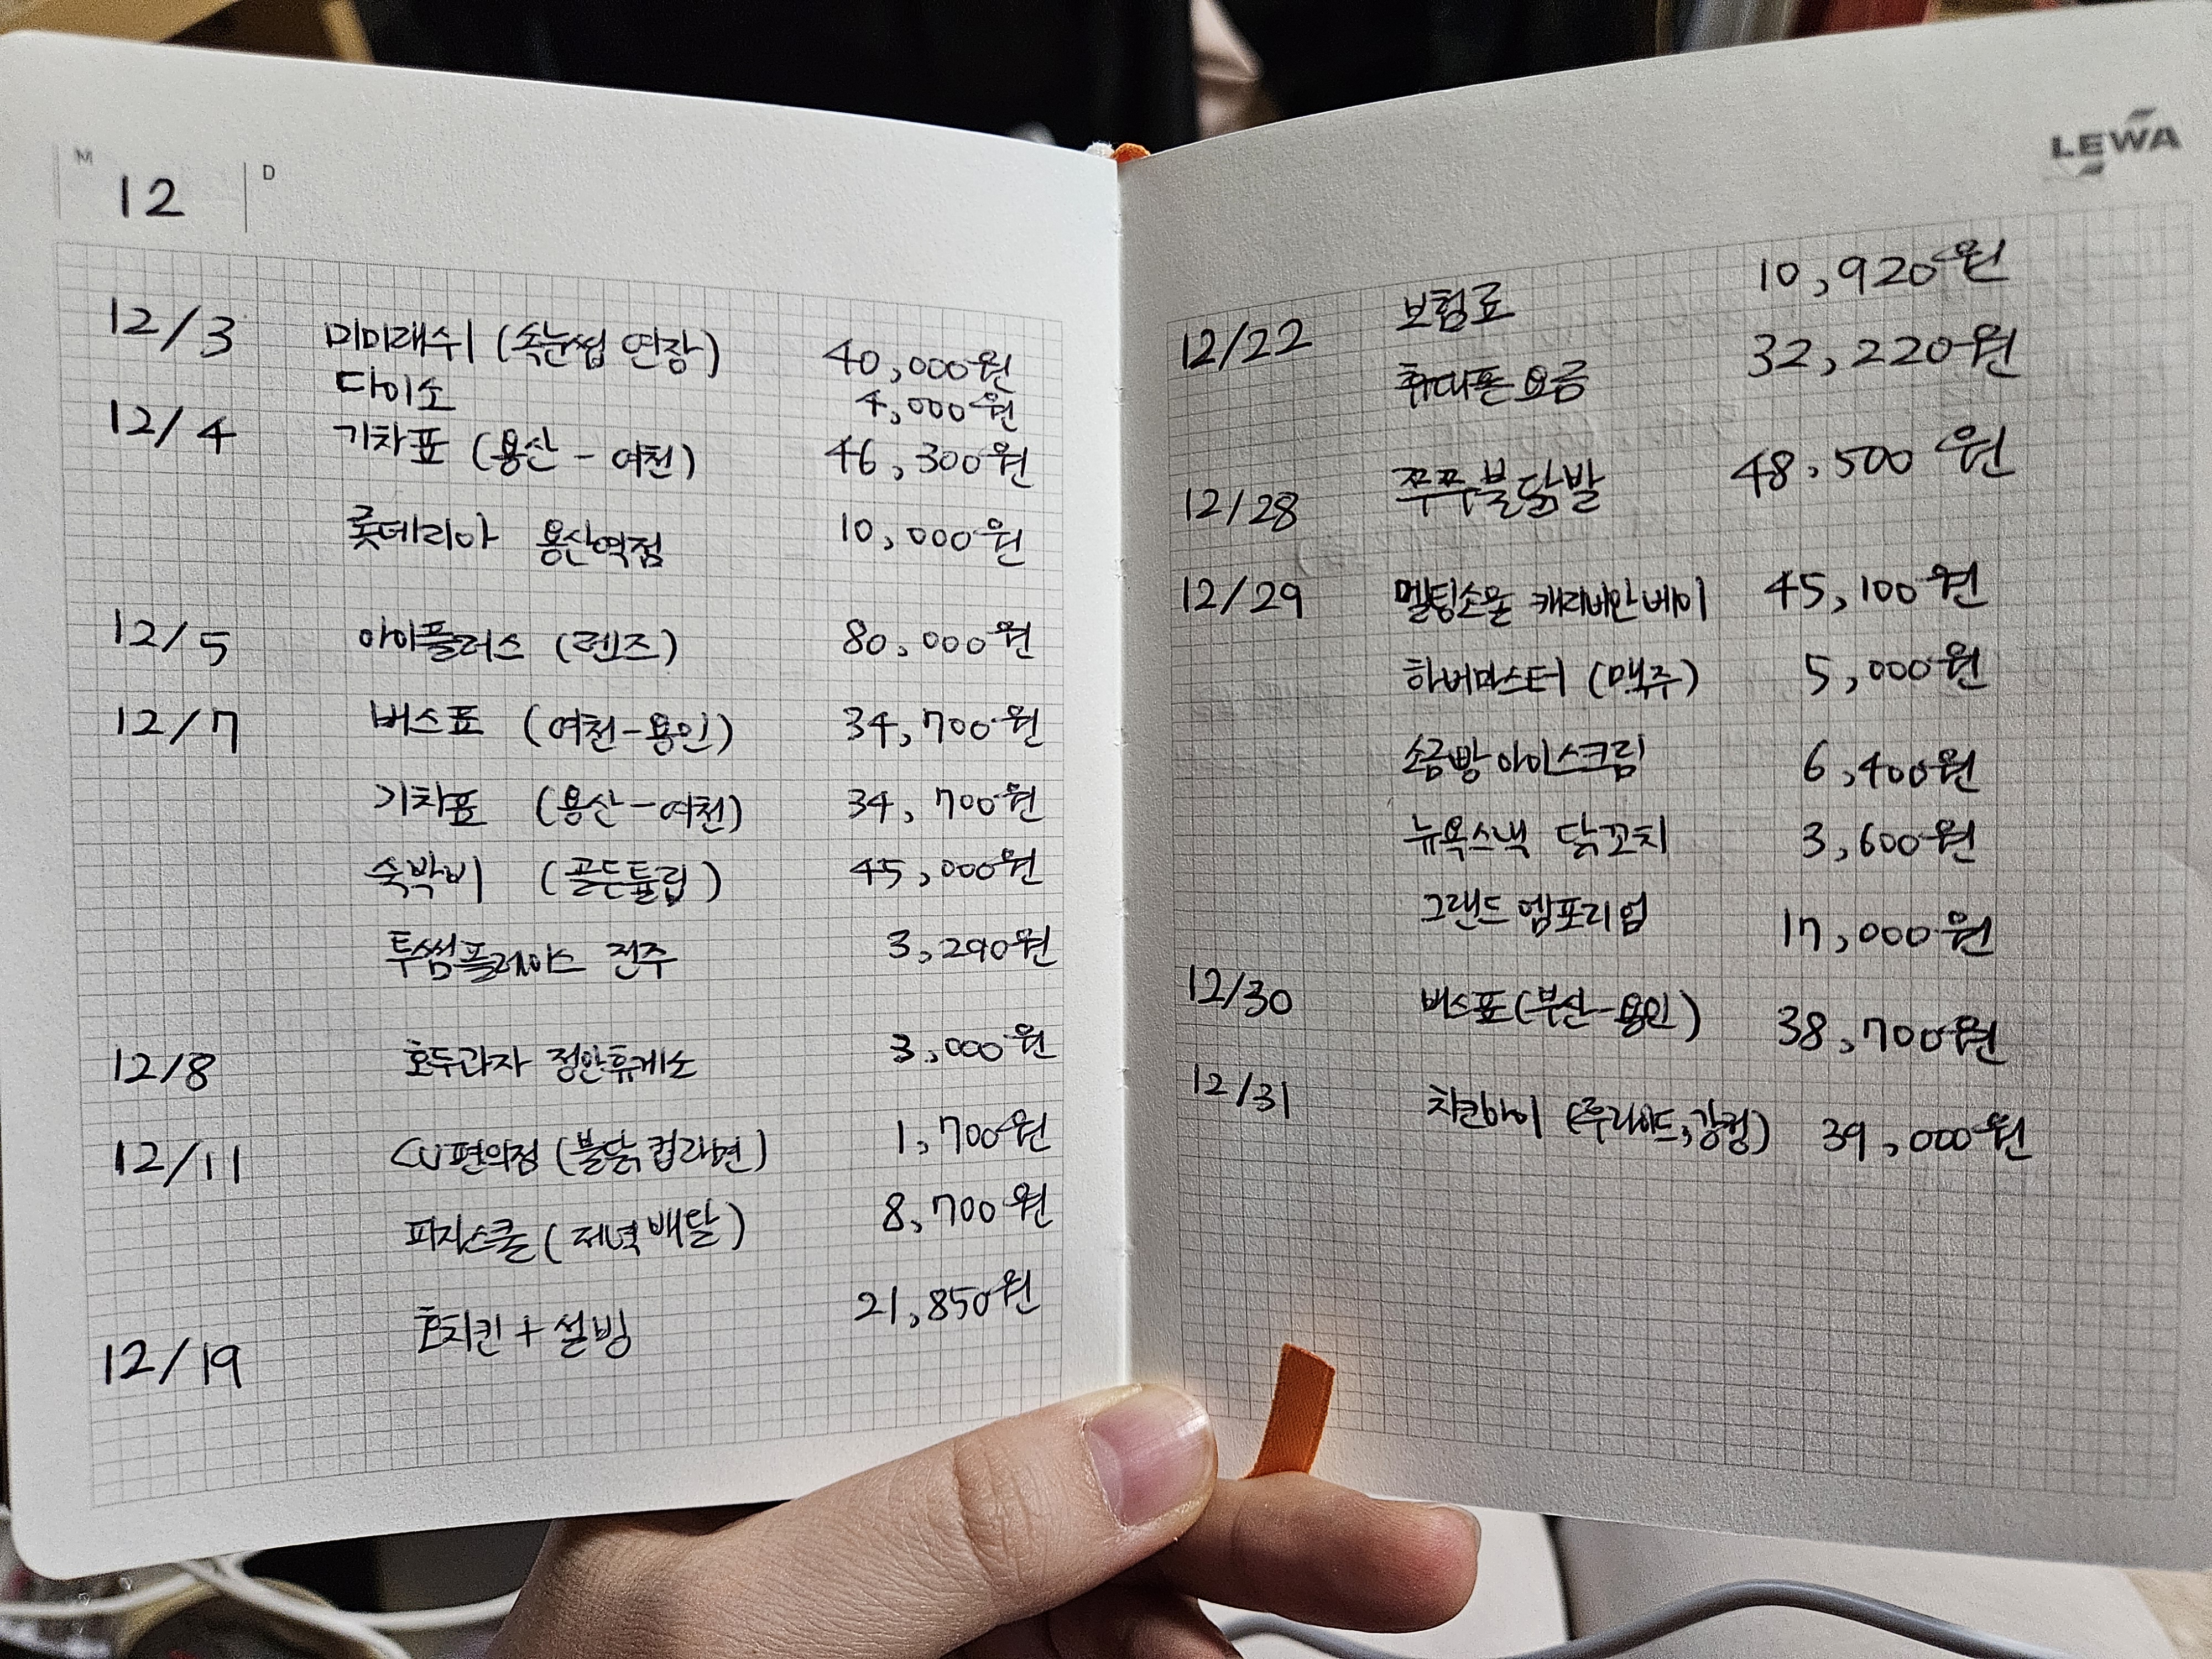 M 12 D
12/3 미미래쉬 (속눈썹 연장) 40,000원
다이소 4,000원
12/4 기차표 (용산 - 여천) 46,300원
롯데리아 용산역점 10,000원
12/5 아이플러스 (렌즈) 80,000원
12/7 버스표 (여천-용인) 34,700원
기차표 (용산-여천) 34,700원
숙박비 (골든튤립) 45,000원
투썸플레이스 전주 3,290원
12/8 호두과자 정안휴게소 3,000원
12/11 CU편의점 (불닭컵라면) 1,700원
피자스쿨 (저녁 배달) 8,700원
12/19 호치킨 + 설빙 21,850원
LEWA
12/22 보험료 10,920원
휴대폰 요금 32,220원
12/28 쭈쭈불닭발 48,500원
12/29 멜팅소울 캐리비안베이 45,100원
하버마스터 (맥주) 5,000원
소금빵 아이스크림 6,400원
뉴욕스낵 닭꼬치 3,600원
그랜드 엠포리엄 17,000원
12/30 버스표 (부산-용인) 38,700원
12/31 치킨아이 (후라이드, 깡컵) 39,000원